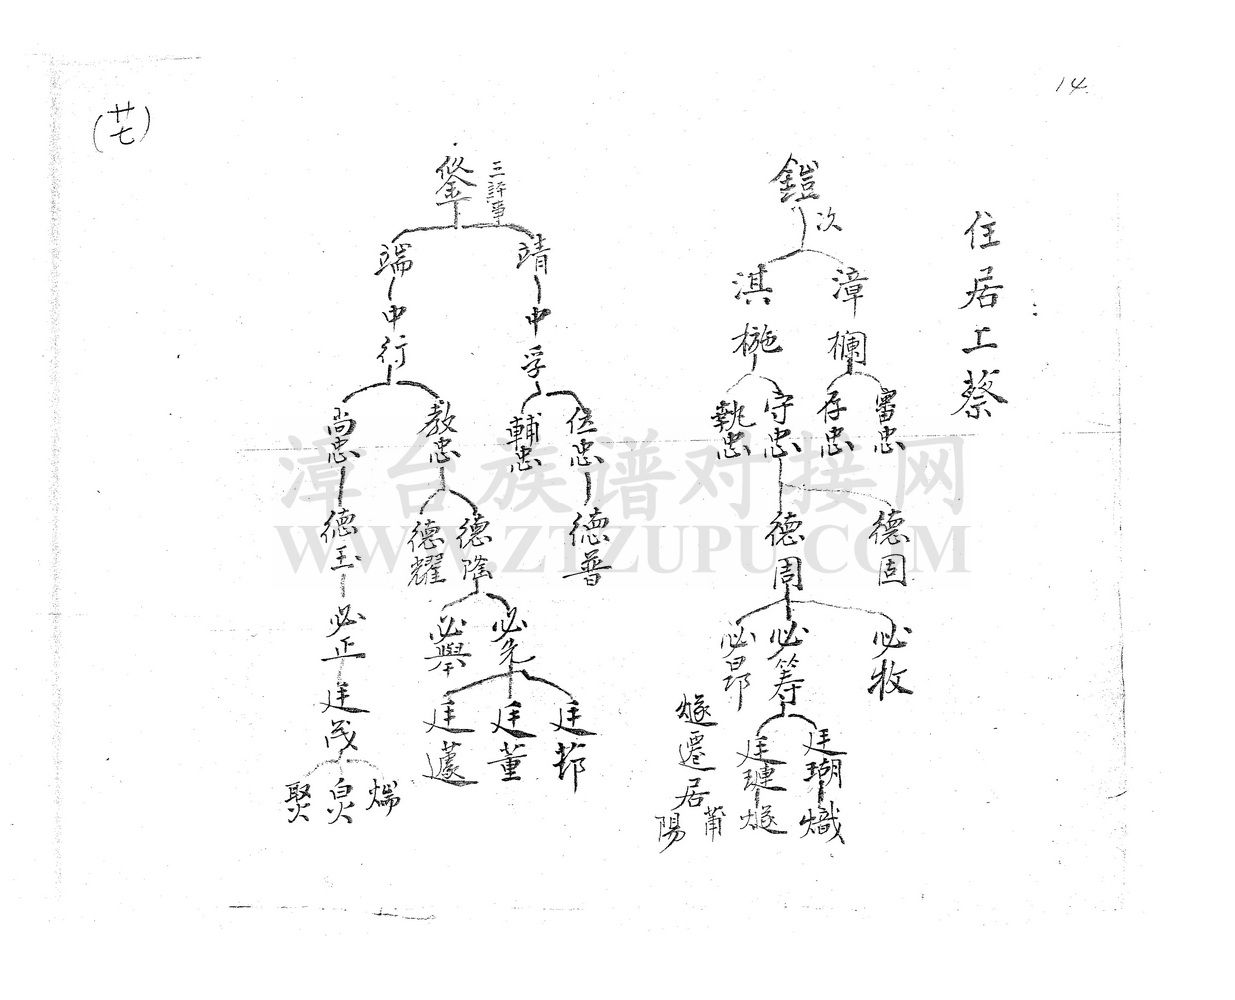 14
(廿七)
住居工蔡
鎧
次
漳
淇
欄
椸
審忠
存忠
守忠
執忠
德固
德周
必牧
必筹
必昂
廷瑚
廷璉
熾
燧
燧遷居莆陽
三評事
靖
端
中孚
中行
位忠
輔忠
教忠
尚忠
德普
德隆
德耀
德玉
必先
必舉
必正
廷董
廷蘧
廷茂
煓
漳台族谱对接网
WWW.ZTZUPU.COM